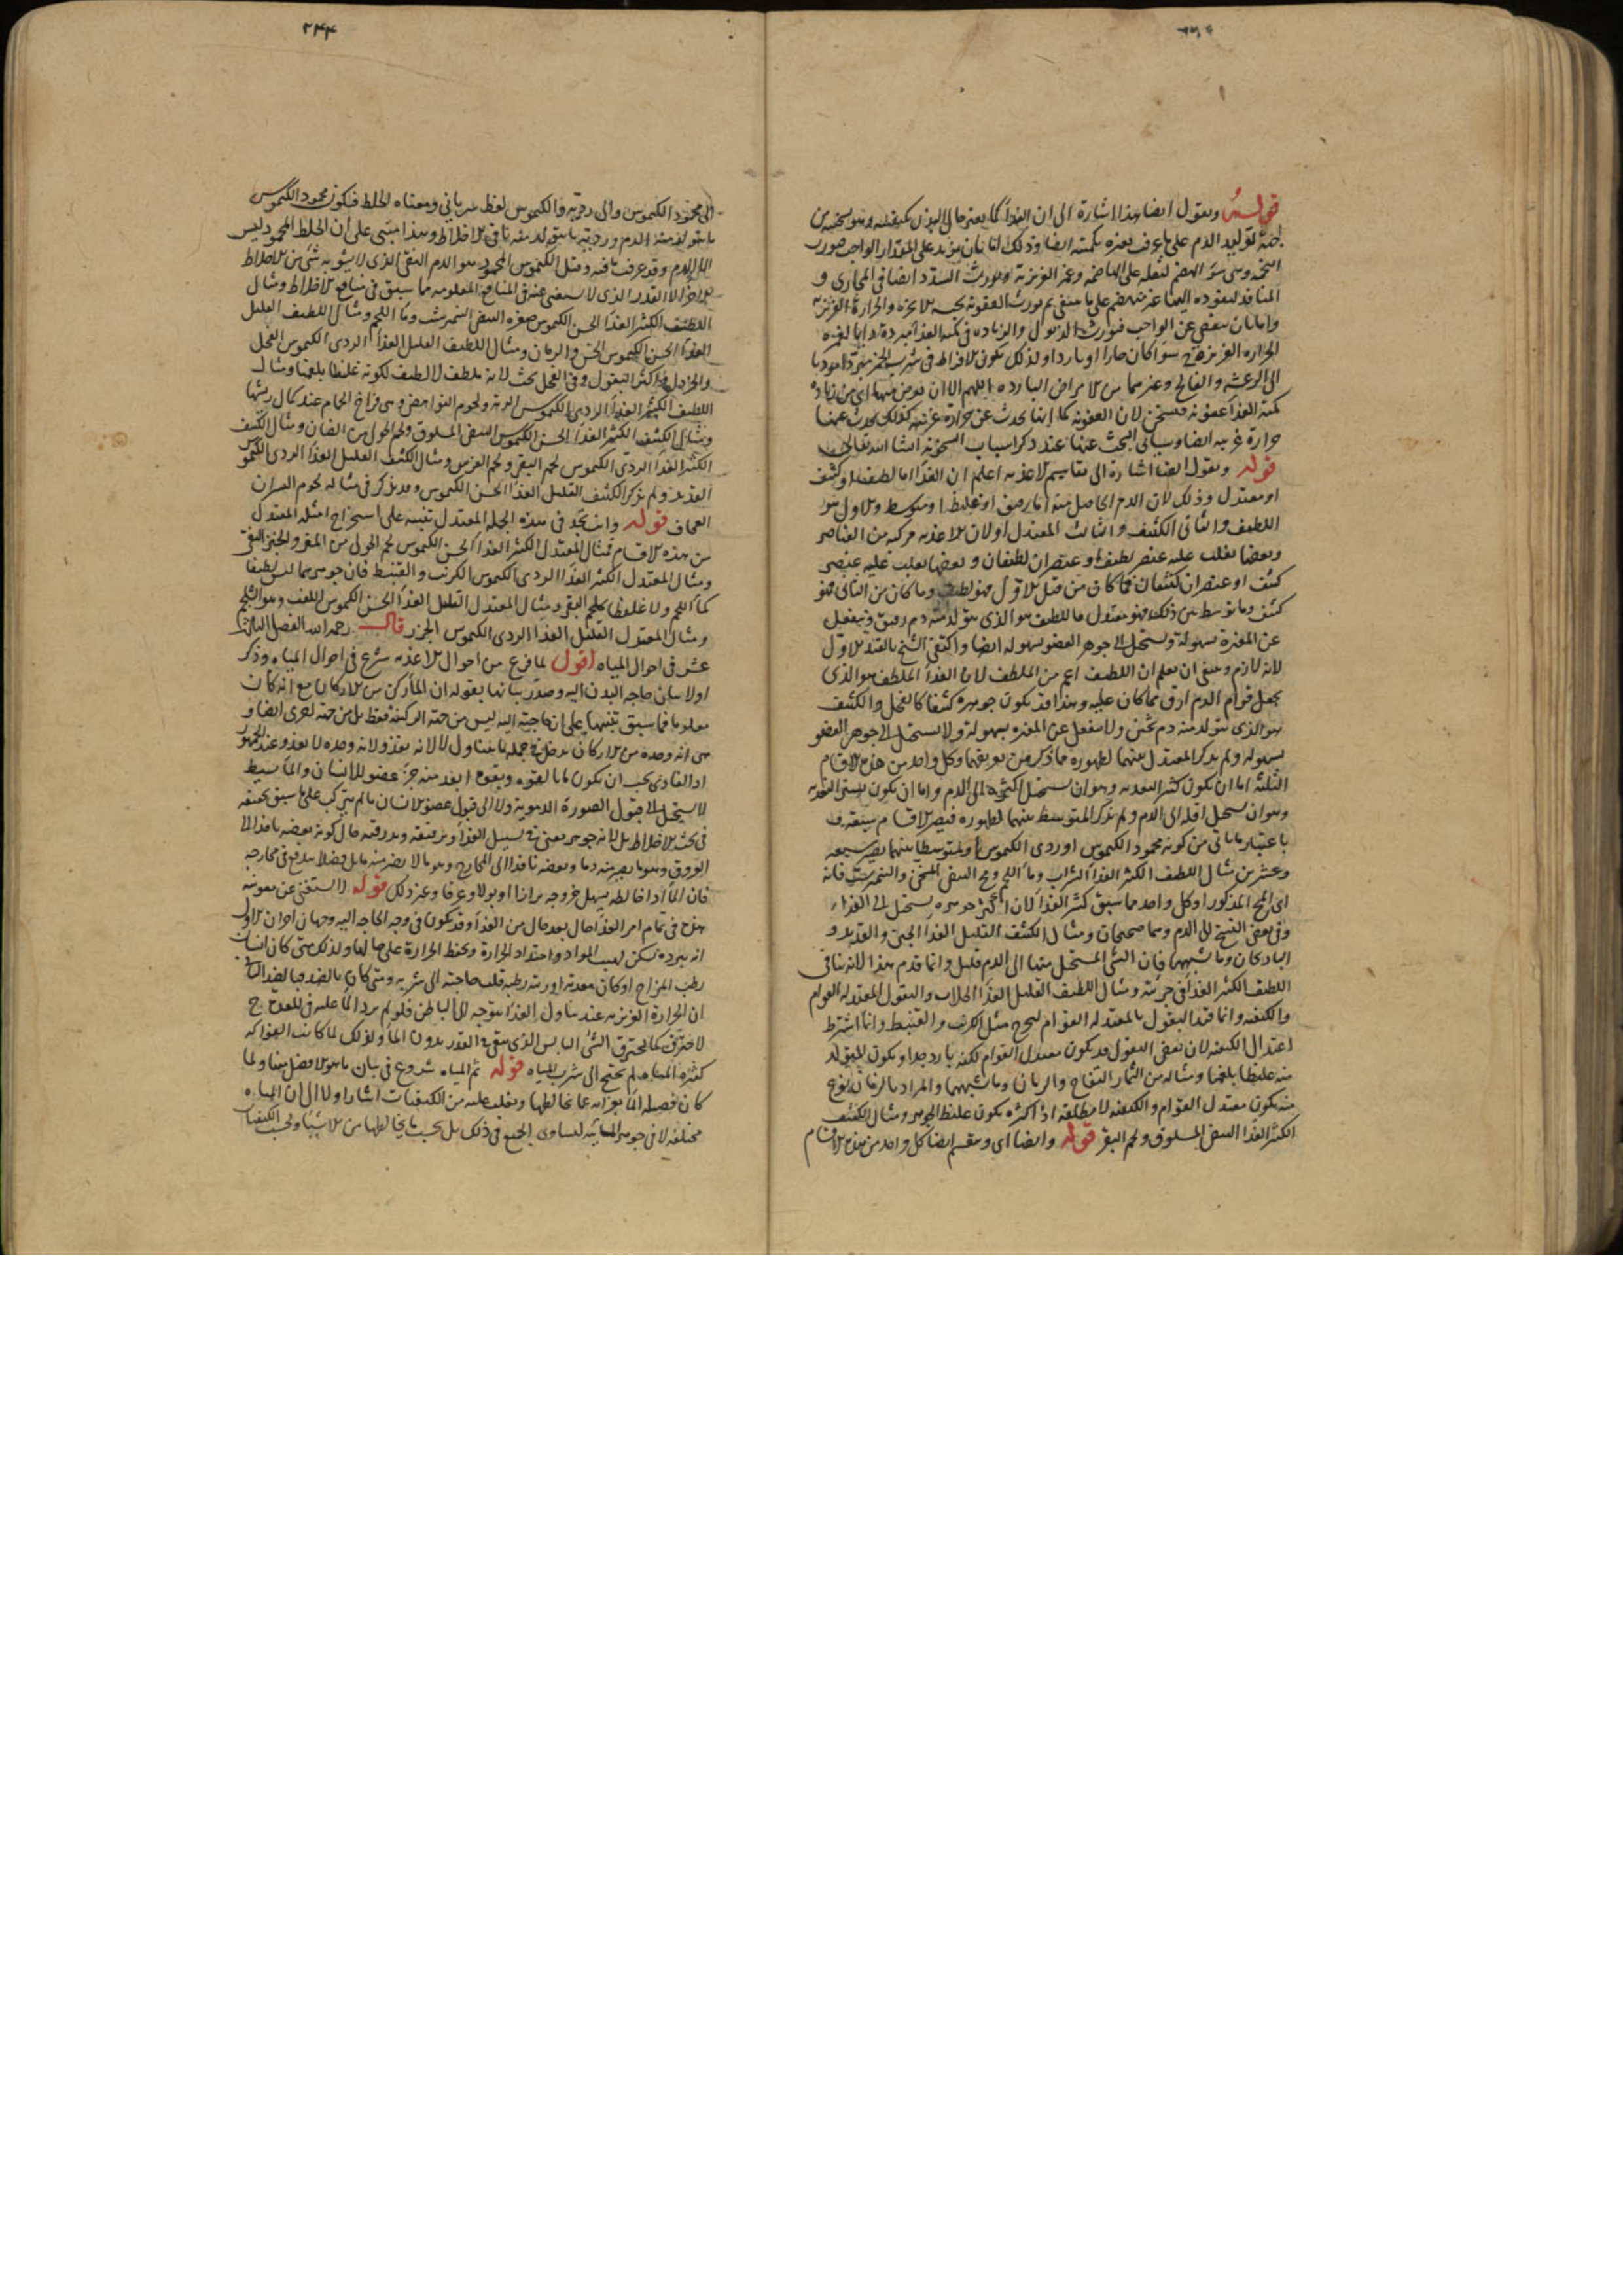 قوله ونقول ايضا هذا اشارة الى ان الغذا كما يغير حال البدن بكيفيته وهو تسخينه من
جهة توليد الدم على ما عرف يغيره بكميته ايضا وذلك اما بان يزيد على المقدار الواجب فيورث
التخمة وهي سوء الهضم لثقله على الهاضمة وغمر الغريزية ويورث السدد ايضا في المجاري و
المنافذ لنفوذه اليها غير منهضم على ما ينبغي ثم يورث العفونة
واما بان ينقص عن الواجب فيورث الذبول والزيادة في كمية الغذا مبردة دايما لغمره
الحرارة الغريزية سوا كان حارا او باردا ولذلك يكون الافراط في شرب الخمر
الى الرعشة والفالج وغيرهما من الامراض الباردة اللهم الا ان يعرض منها اي من زيادة
كمية الغذا عفونة فيسخن لان العفونة كما انها تحدث عن حرارة غريبة كذلك يحدث عنها
حرارة غريبة ايضا وسياتي البحث عنها عند ذكر اسباب السخونة انشا الله تعالى
قوله ونقول ايضا اشارة الى تقاسيم الاغذية اعلم ان الغذا اما لطيف او كثيف
او معتدل وذلك لان الدم الحاصل منه اما رقيق او غليظ او متوسط والاول هو
اللطيف والثاني الكثيف والثالث المعتدل او لان الاغذية مركبة من العناصر
وبعضها يغلب عليه عنصر لطيف او عنصران لطيفان وبعضها يغلب عليه عنصر
كثيف او عنصران كثيفان فما كان من قبيل الاول فهو لطيف وما كان من الثاني فهو
كثيف وما توسط بين ذلك فهو معتدل فاللطيف هو الذي يتولد منه دم رقيق وينفعل
عن المغيرة بسهولة ويستحيل الى جوهر العضو بسهولة ايضا واكتفى الشيخ بالقيد الاول
لانه لازم وينبغي ان يعلم ان اللطيف اعم من الملطف لان الغذا الملطف هو الذي
يجعل قوام الدم ارق مما كان عليه وهذا قد يكون جوهره كثيفا كالفجل والكثيف
هو الذي يتولد منه دم ثخين ولا ينفعل عن المغيرة بسهولة ولا يستحيل الى جوهر العضو
بسهولة ولم يذكر المعتدل بينهما لظهوره مما ذكر من تعريفهما وكل واحد من هذه الاقسام
الثلثة اما ان يكون كثير التغذية وهو ان يستحيل اكثره الى الدم واما ان يكون يسير التغذية
وهو ان يستحيل اقله الى الدم ولم يذكر المتوسط بينهما لظهوره فيصير الاقسام
باعتبار ما ياتي من كونه محمود الكيموس او ردي الكيموس او متوسطا بينهما يصير سبعة
وعشرين مثال اللطيف الكثير الغذا الشراب وما اللحم ومح البيض المسخن والنيمرشت فانه
اي المح المذكور او كل واحد مما سبق كثير الغذا لان اكثر جوهره يستحيل الى الغذاء
وفي بعض النسخ الى الدم وهما صحيحان ومثال الكثيف القليل الغذا الجبن والقديد و
الباذنجان وما يشبهها فان الشي المستحيل منها الى الدم قليل وانما قدم هذا لانه ينافي
اللطيف الكثير الغذا في جزئيه ومثال اللطيف القليل الغذا الجلاب والبقول المعتدلة القوام
والكيفية وانما قيد البقول بالمعتدلة القوام ليخرج مثل الكرنب والقنبيط وانما اشترط
اعتدال الكيفية لان بعض البقول قد يكون معتدل القوام لكنه باردا جدا ويكون المتولد
منه غليظا بلغميا ومثاله من الثمار التفاح والرمان وما يشبههما والمراد بالرمان نوع
منه يكون معتدل القوام والكيفية لا مطلقه اذ اكثره يكون غليظ الجوهر ومثال الكثيف
الكثير الغذا البيض المسلوق ولحم البقر قوله وايضا اي وينقسم ايضا كل واحد من هذه الاقسام
الى محمود الكيموس والى رديه والكيموس لفظ سرياني ومعناه الخلط فيكون محمود الكيموس
ما يتولد منه الدم ورديه ما يتولد منه باقي الاخلاط وهذا مبني على ان الخلط المحمود ليس
الا الدم وقد عرفت ما فيه وقيل الكيموس المحمود هو الدم النقي الذي لا يشوبه شي من الاخلاط
الاخر الا القدر الذي لا يستغنى عنه في المنافع المعلومة مما سبق في منافع الاخلاط ومثال
اللطيف الكثير الغذا الحسن الكيموس صفرة البيض النيمرشت وما اللحم ومثال اللطيف القليل
الغذا الحسن الكيموس الخس والرمان ومثال اللطيف القليل الغذا الردي الكيموس الفجل
والخردل واكثر البقول وفي الفجل بحث لانه ملطف لا لطيف لكونه غليظا بلغميا ومثال
اللطيف الكثير الغذا الردي الكيموس الرية ولحوم النواهض وهي فراخ الحمام عند كمال ريشها
ومثال الكثيف الكثير الغذا الحسن الكيموس البيض المسلوق ولحم الحولي من الضان ومثال الكثيف
الكثير الغذا الردي الكيموس لحم البقر ولحم الفرس ومثال الكثيف القليل الغذا الردي الكيموس
القديد ولم يذكر الكثيف القليل الغذا الحسن الكيموس وقد يذكر في مثاله لحوم الثيران
العجاف قوله وانت تجد في هذه الجملة المعتدل تنبيه على استخراج امثلة المعتدل
من هذه الاقسام فمثال المعتدل الكثير الغذا الحسن الكيموس لحم الحولي من المعز والخبز النقي
ومثال المعتدل الكثير الغذا الردي الكيموس الكرنب والقنبيط فان جوهرهما ليس لطيفا
كماء اللحم ولا غليظا كلحم البقر ومثال المعتدل القليل الغذا الحسن الكيموس اللفت وهو الشلجم
ومثال المعتدل القليل الغذا الردي الكيموس الجزر قال رحمه الله الفصل الثالث
عشر في احوال المياه اقول لما فرغ من احوال الاغذية شرع في احوال المياه وذكر
اولا بيان حاجة البدن اليه وصدر بيانها بقوله ان الماء ركن من الاركان مع انه كان
معلوما فيما سبق تنبيها على ان حاجته اليه ليس من جهة الركنية فقط بل من جهة اخرى ايضا و
هي انه وحده من الاركان يدخل في جملة ما يتناول لا لانه يغذو لانه وحده لا يغذو عند الجمهور
اذ الغاذي يجب ان يكون ما بالقوة ويقوم ابعد منه جزء عضو للانسان والماء بسيط
لا يستحيل الى قبول الصورة الدموية ولا الى قبول عضو الانسان ما لم يتركب على ما سبق تحقيقه
في بحث الاخلاط بل لانه جوهر يعين في تسييل الغذا وترقيقه وبذرقته حال كونه بعضه نافذا الى
العروق وهو ما يصير منه دما وبعضه نافذا الى المخارج وهو ما لا يصير منه بل فضلا يندفع في مخارجه
فان الماء اذا خالطه يسهل خروجه برازا او بولا وعرقا وغير ذلك قوله لا يستغنى عن معونته
هذه في تمام امر الغذا حال بعد حال من الغذا وقد يكون في وجه الحاجة اليه وجهان اخران الاول
انه ببرده يسكن لهيب المواد واحتداد الحرارة ويحفظ الحرارة على حالها ولذلك متى كان انسان
رطب المزاج او كان معدته اوردته رطبة قلت حاجته الى شربه ومتى كان بالضد فبالضد الثاني
ان الحرارة الغريزية عند تناول الغذا يتوجه الى الباطن فلو لم يرد الماء عليه في المعدة ح
لاحترق كما يحترق الشي اليابس الذي يبقى في القدر بدون الماء ولذلك لما كانت الفواكه
كثيرة المياه لم تحتج الى شرب المياه قوله ثم المياه شروع في بيان ما هو الافضل منها ولما
كان فضيلة الماء بجوهره عما يخالطها ويغلب عليه من الكيفيات اشار اولا الى ان المياه
مختلفة لا في جوهر المائية لتساوي الجميع في ذلك بل بحسب ما يخالطها من الاشيا وبحسب الكيفيات